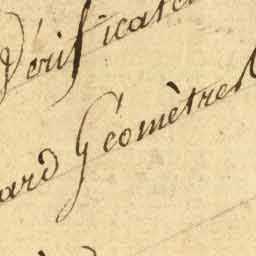 Vérificate
ard Géomètre